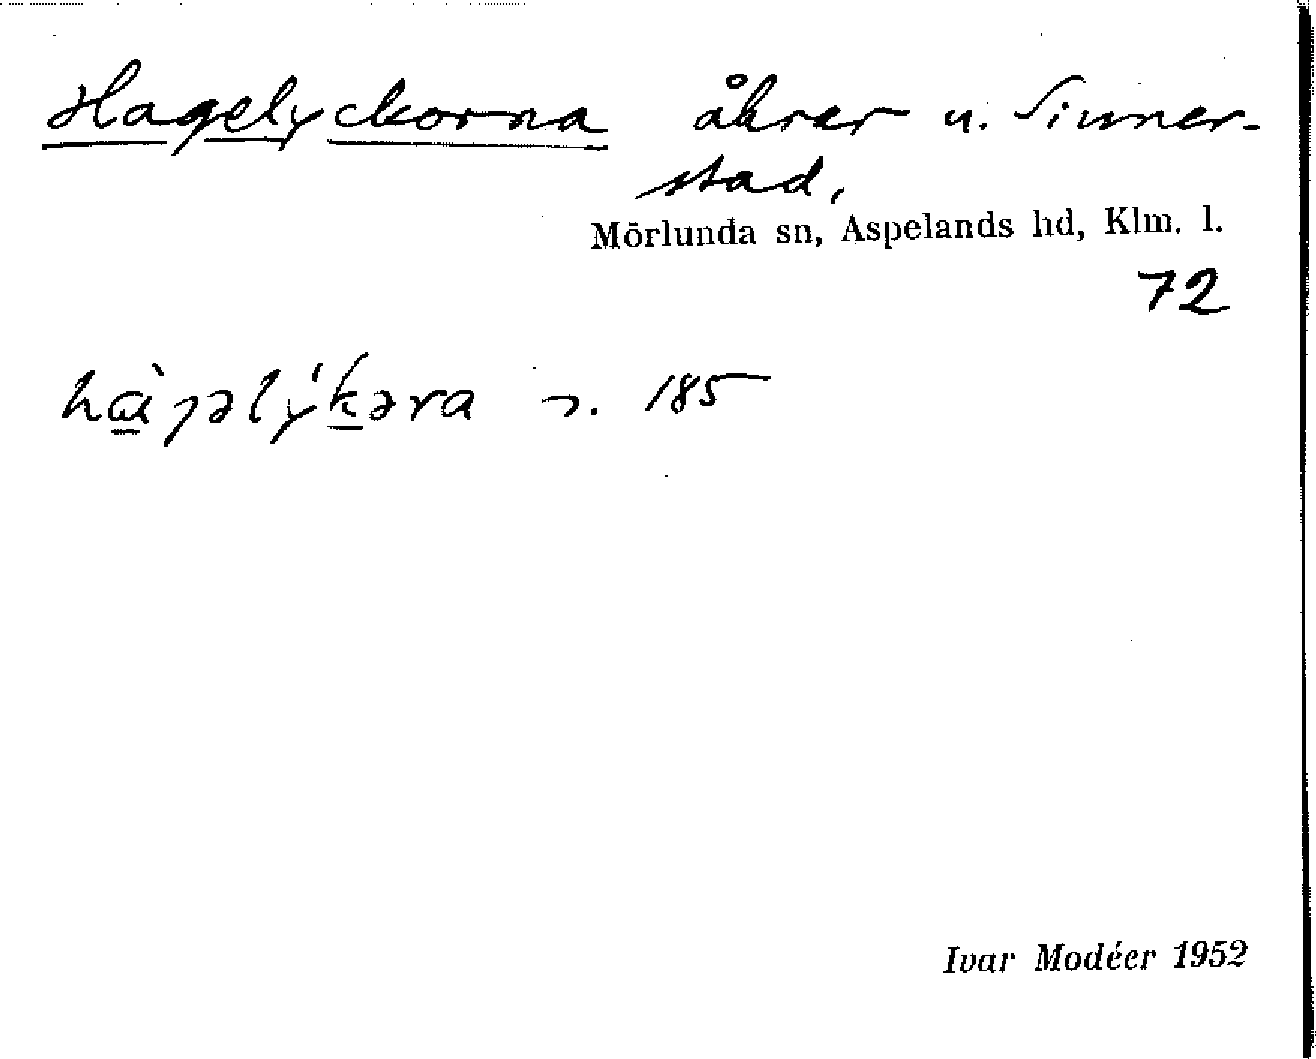 Hagelyckorna åkrer u. Sinner-
stad,
Mörlunda sn, Aspelands hd, Klm. l.
72
185
Ivar Modéer 1952